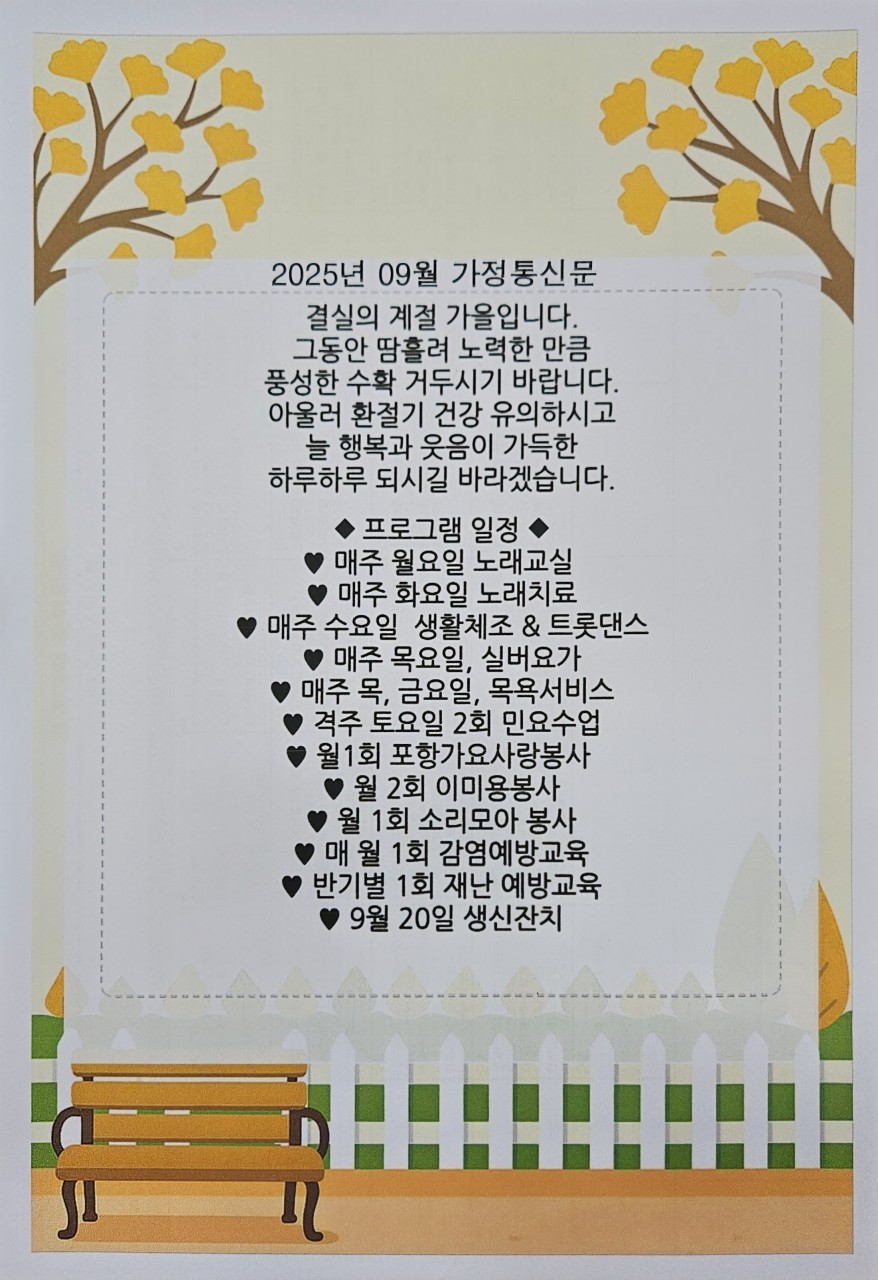 2025년 09월 가정통신문
결실의 계절 가을입니다.
그동안 땀흘려 노력한 만큼
풍성한 수확 거두시기 바랍니다.
아울러 환절기 건강 유의하시고
늘 행복과 웃음이 가득한
하루하루 되시길 바라겠습니다.
◆ 프로그램 일정 ◆
♥ 매주 월요일 노래교실
♥ 매주 화요일 노래치료
♥ 매주 수요일 생활체조 & 트롯댄스
♥ 매주 목요일, 실버요가
♥ 매주 목, 금요일, 목욕서비스
♥ 격주 토요일 2회 민요수업
♥ 월1회 포항가요사랑봉사
♥ 월 2회 이미용봉사
♥ 월 1회 소리모아 봉사
♥ 매 월 1회 감염예방교육
♥ 반기별 1회 재난 예방교육
♥ 9월 20일 생신잔치